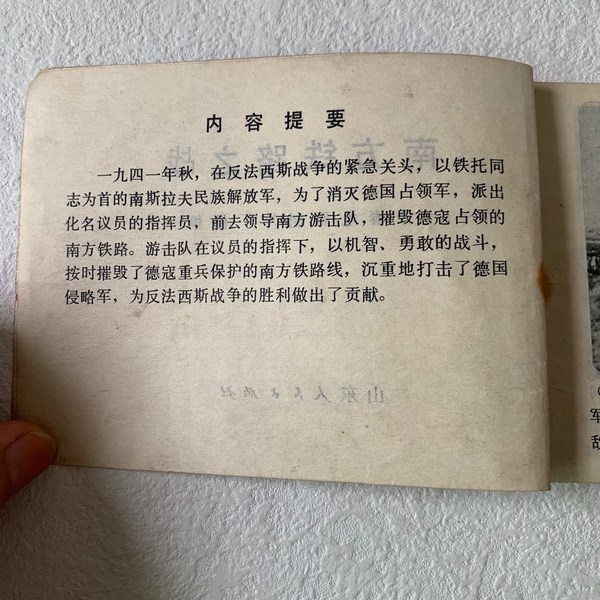 内容提要
一九四一年秋，在反法西斯战争的紧急关头，以铁托同
志为首的南斯拉夫民族解放军，为了消灭德国占领军，派出
化名议员的指挥员，前去领导南方游击队，摧毁德寇占领的
南方铁路。游击队在议员的指挥下，以机智、勇敢的战斗，
按时摧毁了德寇重兵保护的南方铁路线，沉重地打击了德国
侵略军，为反法西斯战争的胜利做出了贡献。
南方铁路之战
山东人民出版社
军
敌